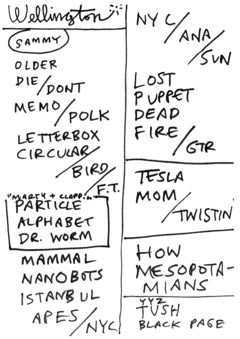 Wellington
SAMMY
OLDER
DIE/DONT
MEMO/POLK
LETTERBOX
CIRCULAR/BIRD/F.T.
"MARTY + CLAPP."
PARTICLE
ALPHABET
DR. WORM
MAMMAL
NANOBOTS
ISTANBUL
APES/NYC
NYC/ANA/SUN
LOST
PUPPET
DEAD
FIRE/GTR
TESLA
MOM/TWISTIN'
HOW
MESOPOTA-
MIANS
YYZ
TUSH
BLACK PAGE